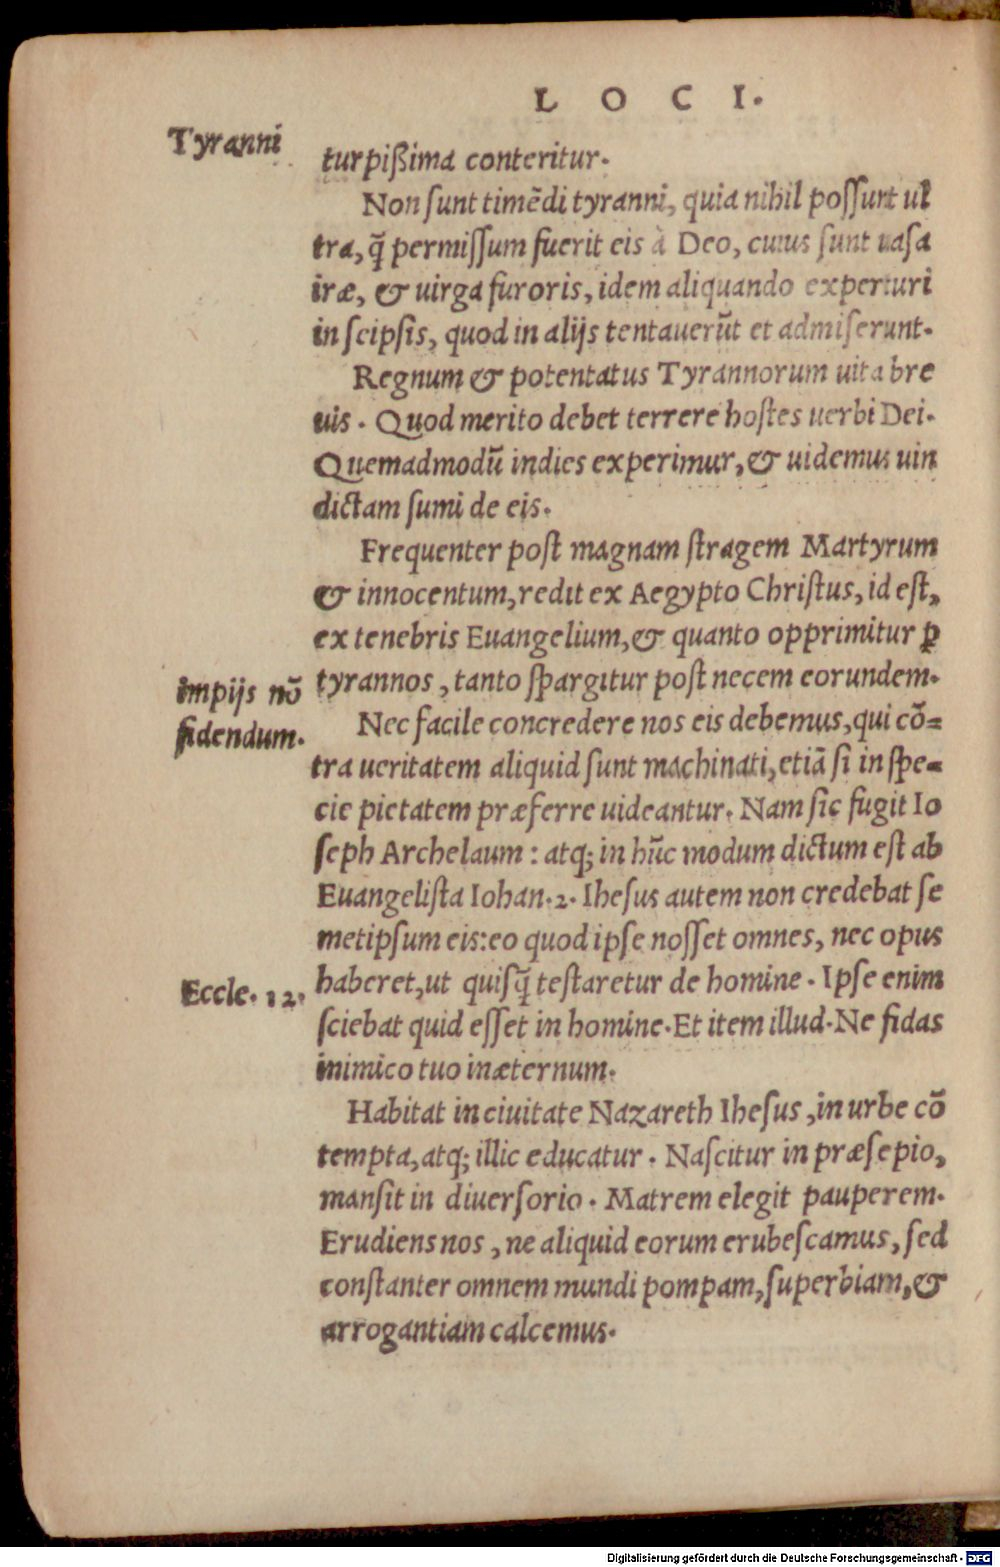 LOCI.
Tyranni
turpißima conteritur.
Non sunt timẽdi tyranni, quia nihil possunt ul
tra, q̃ permissum fuerit eis à Deo, cuius sunt uasa
iræ, & uirga furoris, idem aliquando experturi
in seipsis, quod in alijs tentauerũt et admiserunt.
Regnum & potentatus Tyrannorum uita bre
uis. Quod merito debet terrere hostes uerbi Dei.
Quemadmodũ indies experimur, & uidemus uin
dictam sumi de eis.
Frequenter post magnam stragem Martyrum
& innocentum, redit ex Aegypto Christus, id est,
ex tenebris Euangelium, & quanto opprimitur ꝑ
tyrannos, tanto spargitur post necem eorundem.
impijs nõ
fidendum.
Nec facile concredere nos eis debemus, qui cõ=
tra ueritatem aliquid sunt machinati, etiã si in spe=
cie pietatem præferre uideantur. Nam sic fugit Io
seph Archelaum: atq; in hũc modum dictum est ab
Euangelista Iohan. 2. Ihesus autem non credebat se
metipsum eis: eo quod ipse nosset omnes, nec opus
haberet, ut quisq̃ testaretur de homine. Ipse enim
Eccle. 12.
sciebat quid esset in homine. Et item illud. Ne fidas
inimico tuo inæternum.
Habitat in ciuitate Nazareth Ihesus, in urbe cõ
tempta, atq; illic educatur. Nascitur in præsepio,
mansit in diuersorio. Matrem elegit pauperem.
Erudiens nos, ne aliquid eorum erubescamus, sed
constanter omnem mundi pompam, superbiam, &
arrogantiam calcemus.
Digitalisierung gefördert durch die Deutsche Forschungsgemeinschaft - DFG